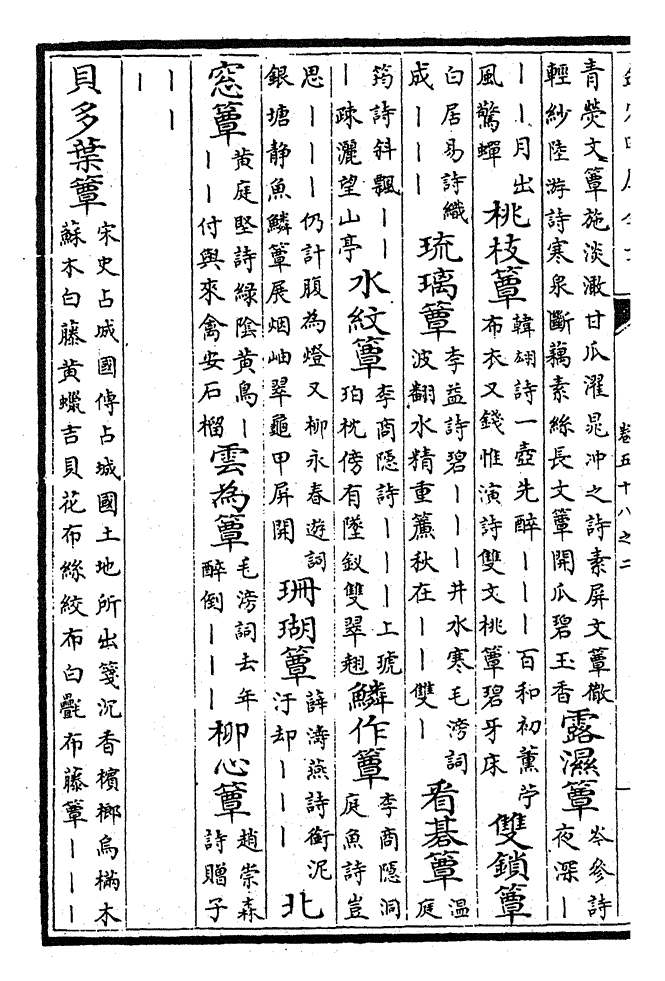 卷五十八之二
青熒文簟施淡澉甘瓜濯晁冲之詩素屏文簟徹
輕紗陸游詩寒泉斷藕素絲長文簟開瓜碧玉香
露濕簟
岑參詩
夜深丨
丨丨月出
風驚蟬
桃枝簟
韓翃詩一壺先醉丨丨丨百和初薰苧
布衣又錢惟演詩雙文桃簟碧牙床
雙鎖簟
白居易詩織
成丨丨丨
琉璃簟
李益詩碧丨丨丨井水寒毛滂詞
波翻水精重簾秋在丨丨雙丨
看棊簟
溫
庭
筠詩斜飄丨丨
丨疎灑望山亭
水紋簟
李商隱詩丨丨丨上琥
珀枕傍有墜釵雙翠翹
鱗作簟
李商隱洞
庭魚詩豈
思丨丨丨仍計腹為燈又柳永春遊詞
銀塘静魚鱗簟展烟岫翠龜甲屏開
珊瑚簟
薛濤燕詩銜泥
汙却丨丨丨
北
窓簟
黄庭堅詩綠陰黄鳥丨
丨丨付與來禽安石榴
雲為簟
毛滂詞去年
醉倒丨丨丨
柳心簟
趙崇森
詩贈子
丨丨
丨
貝多葉簟
宋史占城國傳占城國土地所出箋沉香檳榔烏樠木
蘇木白藤黄蠟吉貝花布絲絞布白氎布藤簟丨丨丨